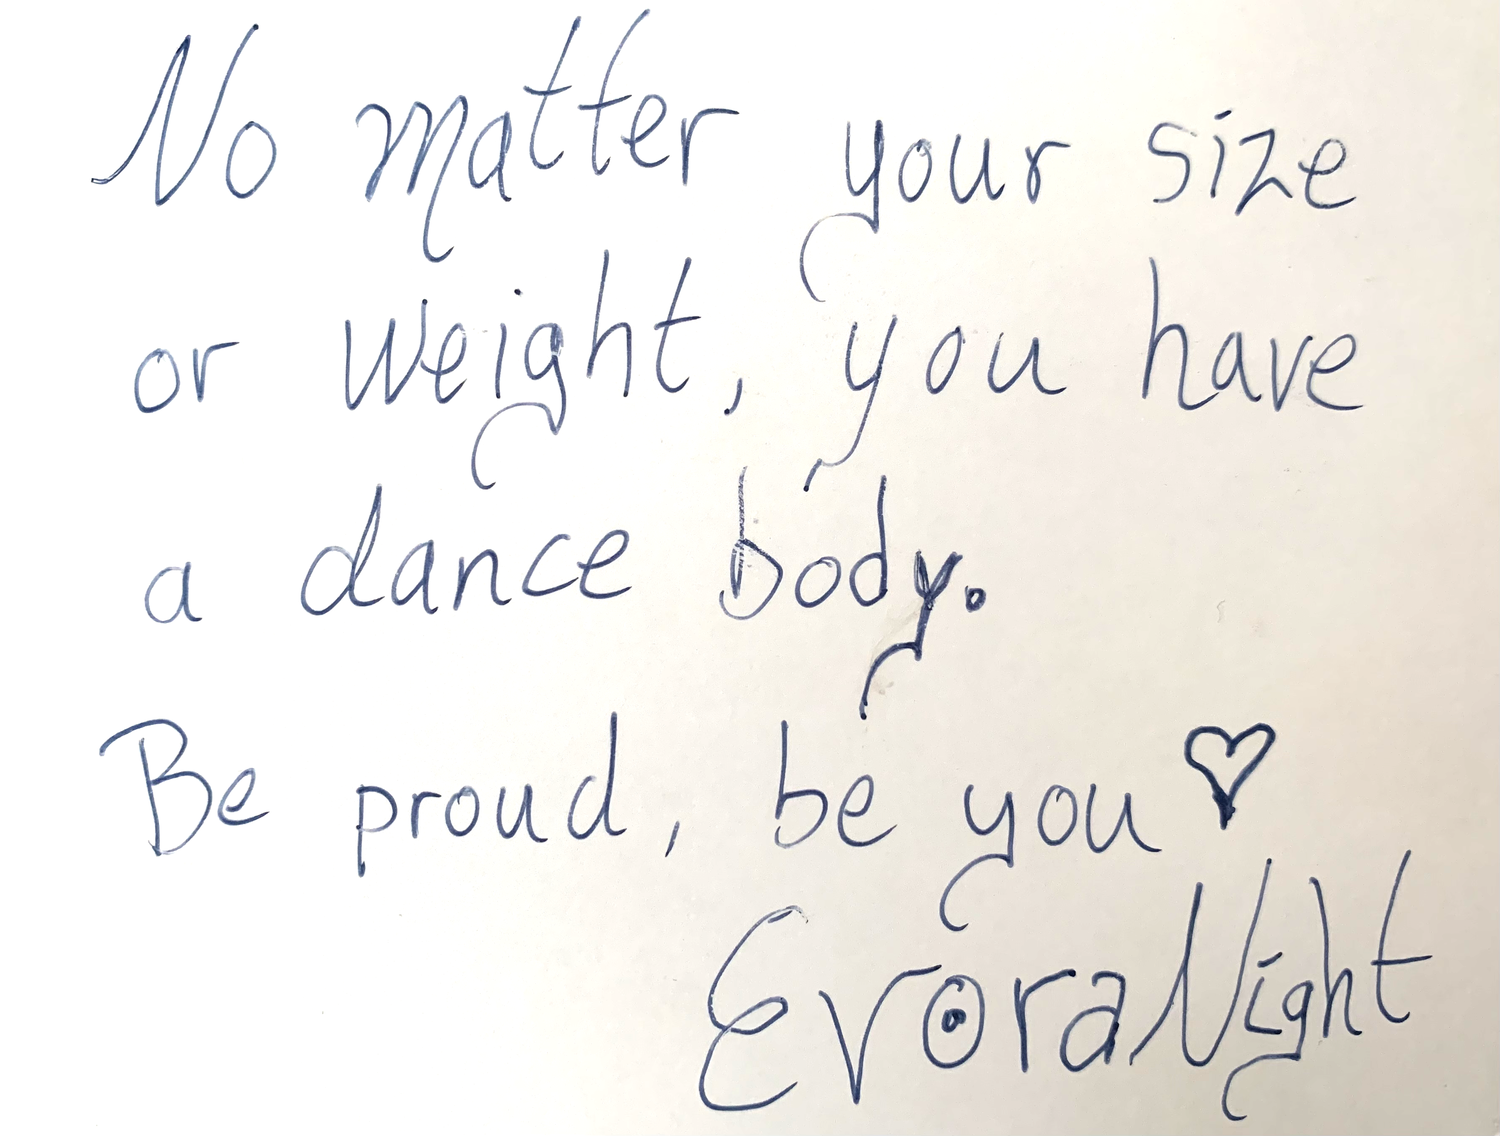 No matter your size
or weight, you have
a dance body.
Be proud, be you♡
EvoraNight